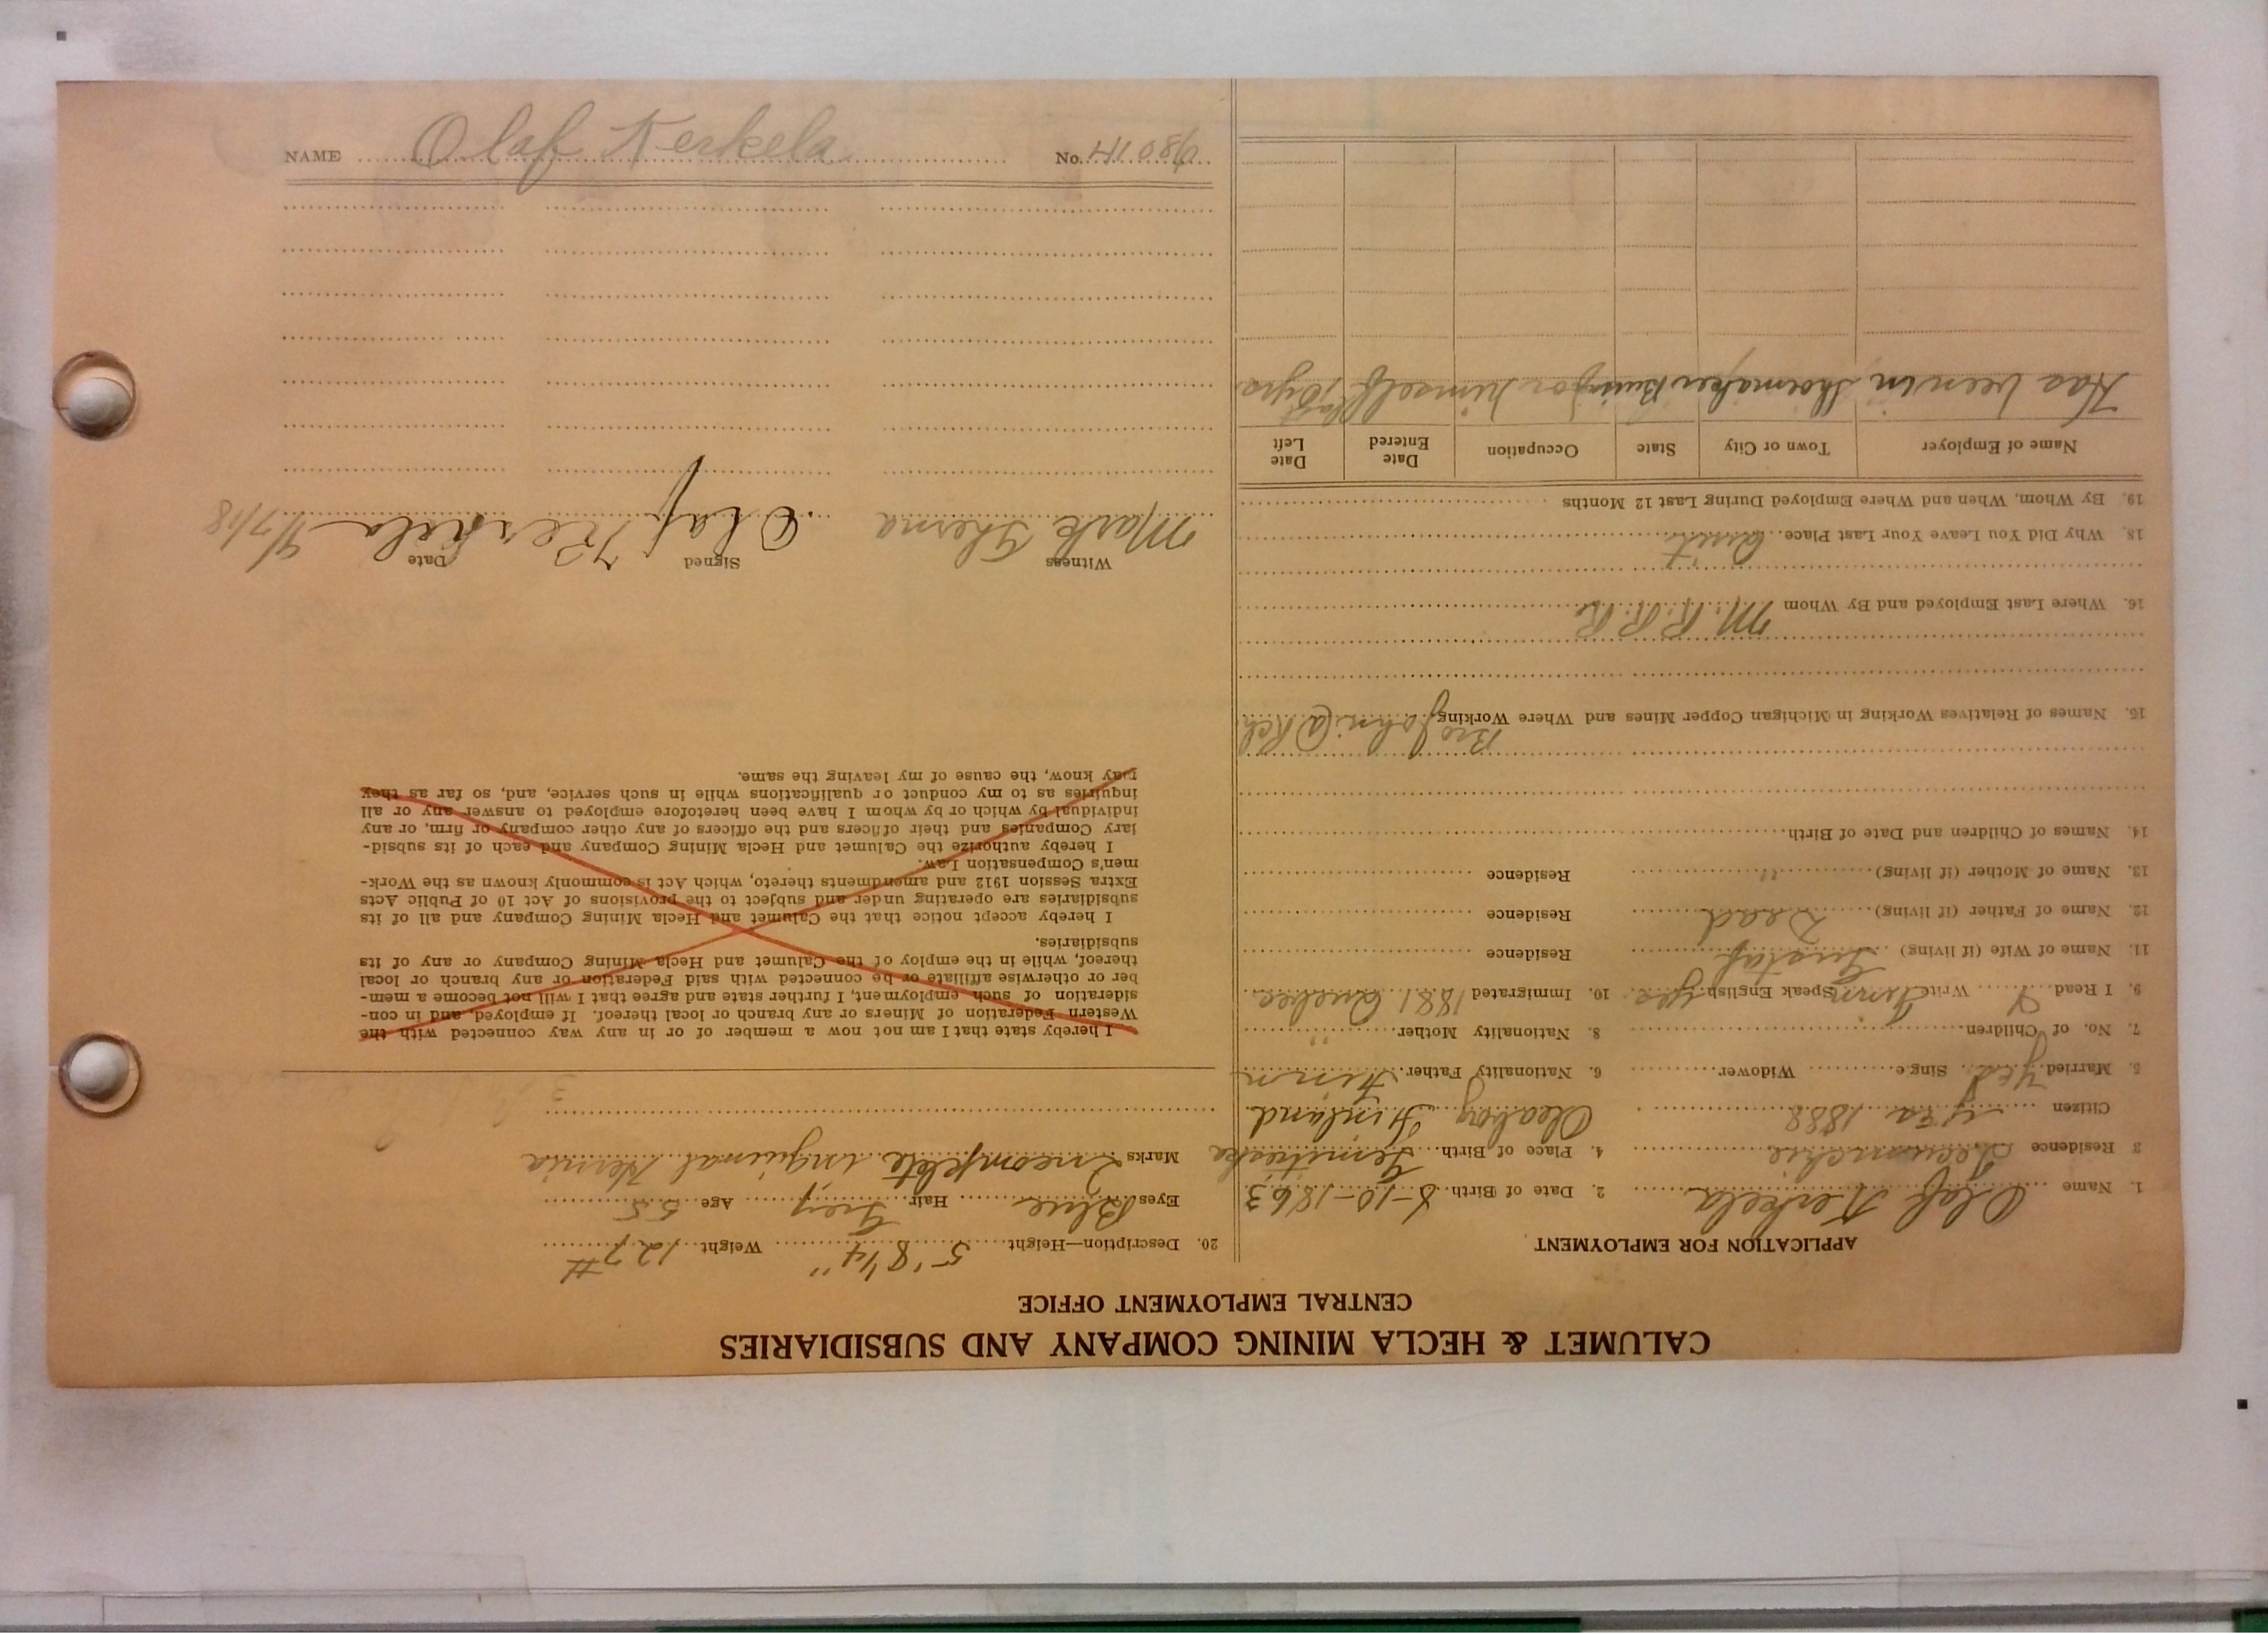 CALUMET & HECLA MINING COMPANY AND SUBSIDIARIES
CENTRAL EMPLOYMENT OFFICE
APPLICATION FOR EMPLOYMENT
1. Name Olaf Kerkela 2. Date of Birth 8-10-1863
3 Residence 4. Place of Birth
Citizen 1888 Finland
5. Married Yes Single Widower 6. Nationality Father Finn
7. No. of Children 8. Nationality Mother "
9. I Read Write Finn Speak English Yes 10. Immigrated 1881 Quebec
11. Name of Wife (if living) Residence
12. Name of Father (if living) Dead Residence
13. Name of Mother (if living) " Residence
14. Names of Children and Date of Birth
Bro John @ Rch
15. Names of Relatives Working in Michigan Copper Mines and Where Working
16. Where Last Employed and By Whom M. R. R. R.
18. Why Did You Leave Your Last Place Quit
19. By Whom, When and Where Employed During Last 12 Months
Name of Employer Town or City State Occupation Date Entered Date Left
Has been in Shoemaker Busin for himself last 10 yrs.
20. Description—Height 5' 8 1/4" Weight 127#
Eyes Blue Hair Grey Age 55
Marks Incomplete inguinal Hernia
I hereby state that I am not now a member of or in any way connected with the
Western Federation of Miners or any branch or local thereof. If employed, and in con-
sideration of such employment, I further state and agree that I will not become a mem-
ber or otherwise affiliate or be connected with said Federation or any branch or local
thereof, while in the employ of the Calumet and Hecla Mining Company or any of its
subsidiaries.
I hereby accept notice that the Calumet and Hecla Mining Company and all of its
subsidiaries are operating under and subject to the provisions of Act 10 of Public Acts
Extra Session 1912 and amendments thereto, which Act is commonly known as the Work-
men's Compensation Law.
I hereby authorize the Calumet and Hecla Mining Company and each of its subsid-
iary Companies and their officers and the officers of any other company or firm, or any
individual by which or by whom I have been heretofore employed to answer any or all
inquiries as to my conduct or qualifications while in such service, and, so far as they
may know, the cause of my leaving the same.
Witness Signed Date
Mark Olaf Kerkela
NAME Olaf Kerkela No.